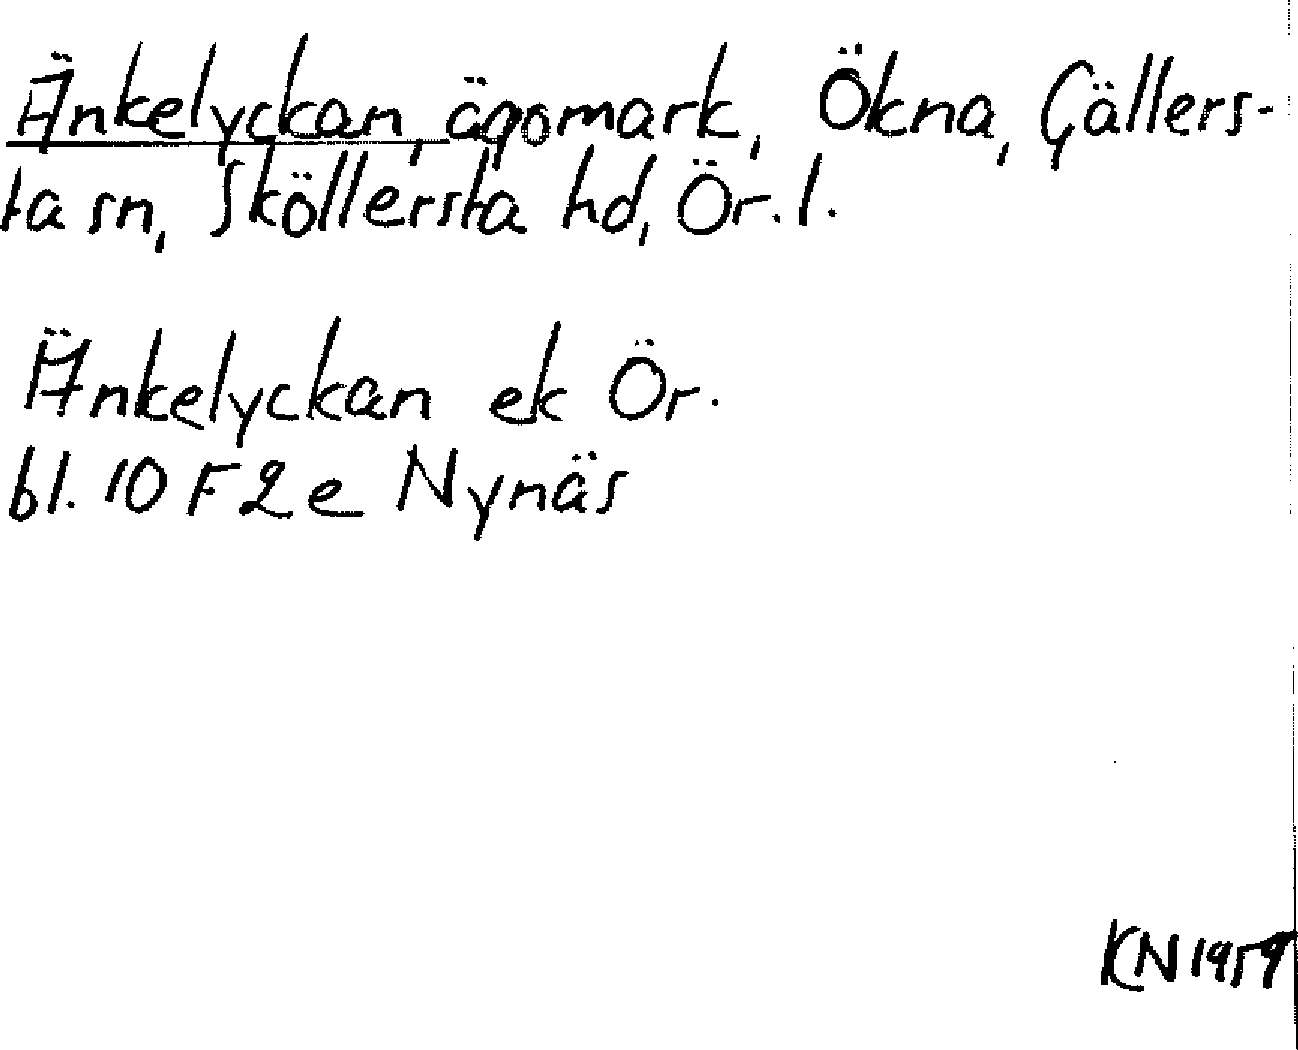 Änkelyckan, ägomark, Ökna, Gällers-
ta sn, Sköllersta hd, Ör. l.
Änkelyckan ek Ör.
bl. 10 F 2 e Nynäs
KN 1959